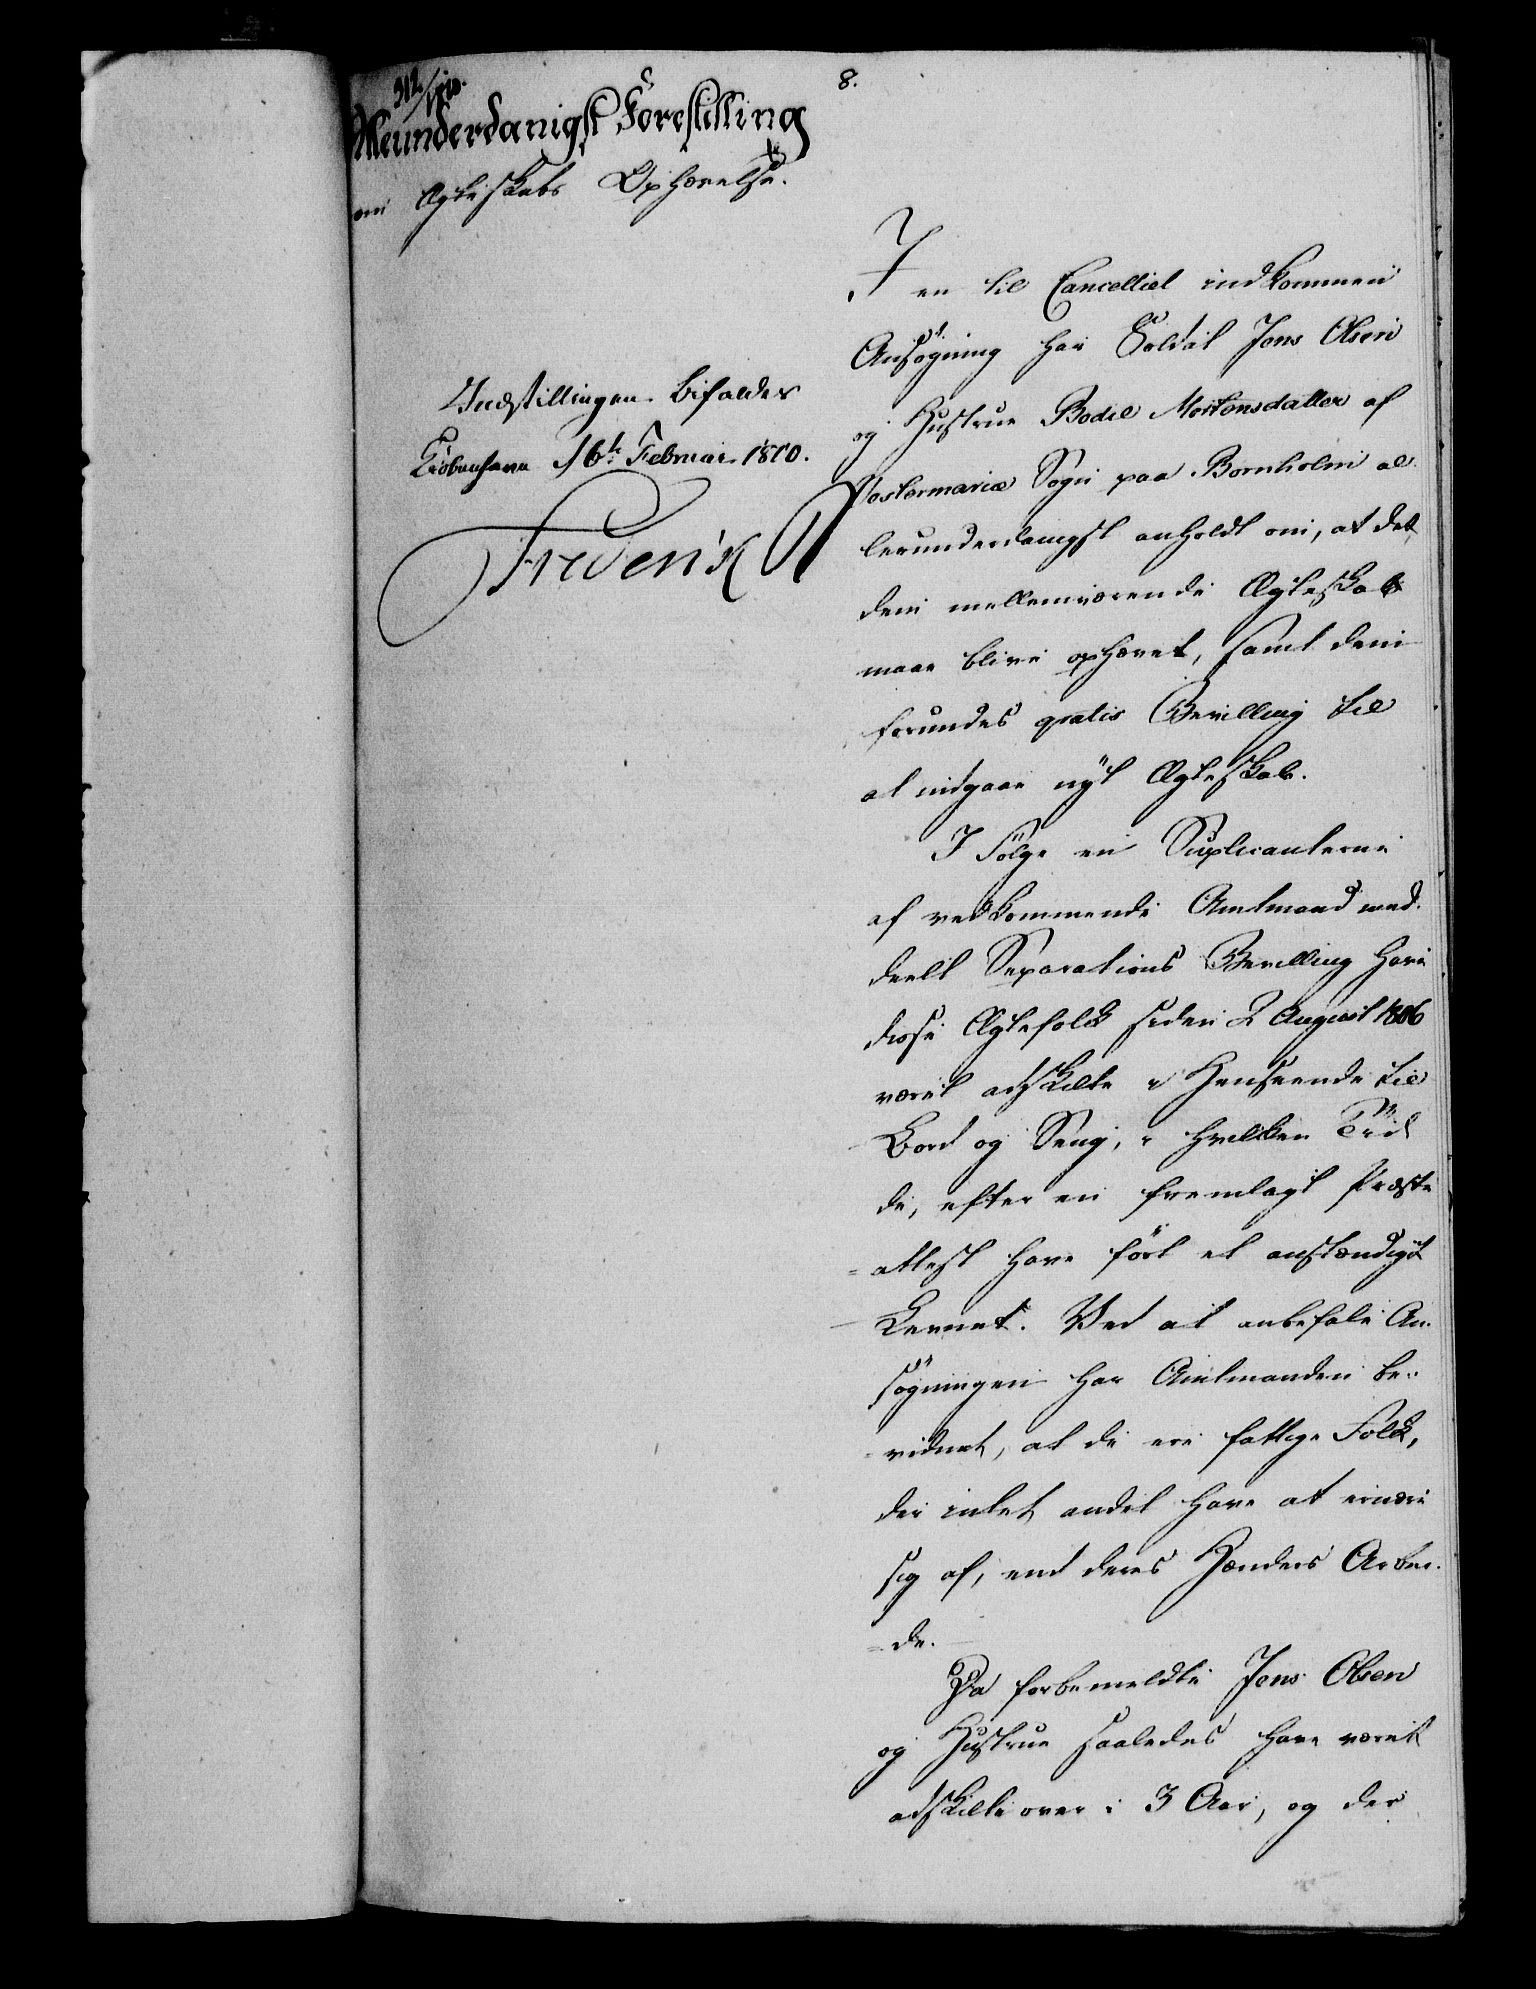 8.
312/1810.
Alleunderdanigst Forestilling
om Ægteskabs Ophævelse.
Indstillingen bifaldes
Kiöbenhavn 16de Februar 1810.
Frederik R
I en til Cancelliet indkommen
Ansøgning har Soldat Jens Olsen
og Hustrue Bodil Mortensdatter af
Vestermariæ Sogn paa Bornholm al-
lerunderdanigst anholdt om, at det
dem mellemværende Ægteskab
maae blive ophævet, samt dem
forundes gratis Bevilling til
at indgaae nyt Ægteskab.
I Følge en Suplicanterne
af vedkommende Amtmand med-
deelt Separations Bevilling have
disse Ægtefolk siden 2 August 1806
været adskilte i Henseende til
Bord og Seng, i hvilken Tiid
de, efter en fremlagt Præste
=attest have ført et anstændigt
Levnet. Ved at anbefale An-
søgningen har Amtmanden be-
=vidnet, at de ere fattige Folk,
der intet andet have at ernære
sig af, end deres Hænders Arbei-
=de.
Da forbemeldte Jens Olsen
og Hustrue saaledes have været
adskilte over i 3 Aar, og der